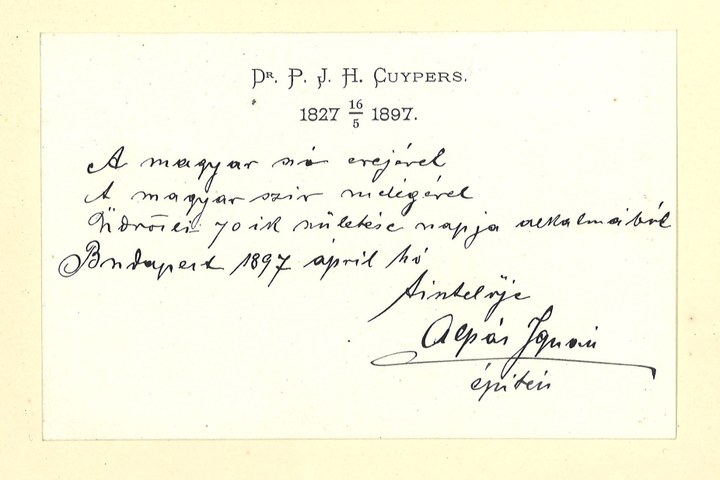 Dr. P. J. H. Cuypers.
1827 16/5 1897.
A magyar szó erejével
A magyar szív melegével
Üdvözli 70 ik születése napja alkalmából
Budapest 1897 ápril hó
tisztelője
Alpár Ignác
építész